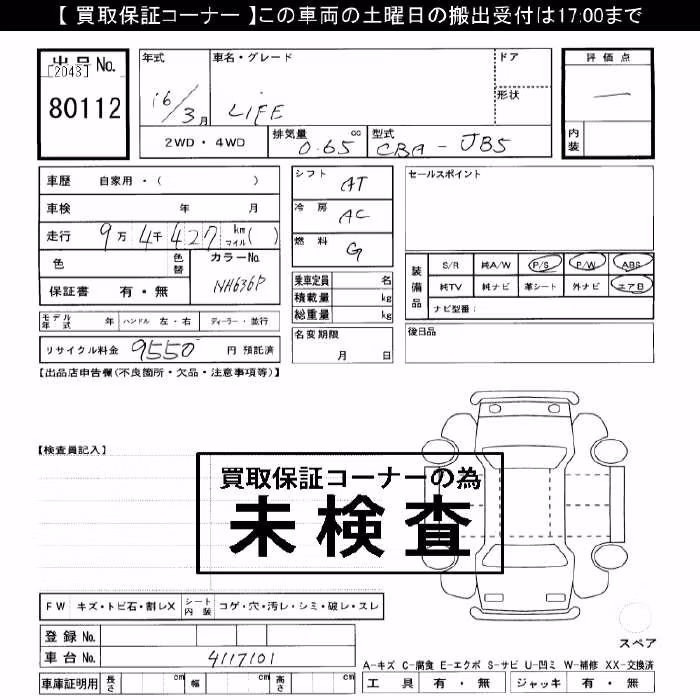 【 買取保証コーナー 】この車両の土曜日の搬出受付は17:00まで
出品 No.
[2043]
80112
年式
16/3月
車名・グレード
LIFE
ドア
形状
評価点
一
内装
2WD・4WD
排気量 cc
0.65
型式
CBA-JB5
車歴 自家用・( )
車検 年 月
走行 9万4千427 km マイル( )
色 色替 カラーNo. NH636P
保証書 有・無
モデル年式 年 ハンドル 左・右 ディーラー・並行
リサイクル料金 9550 円 預託済
シフト AT
冷房 AC
燃料 G
乗車定員 名
積載量 kg
総重量 kg
名変期限
月 日
セールスポイント
装備品
S/R 純A/W P/S P/W ABS
純TV 純ナビ 革シート 外ナビ エアB
ナビ型番:
後日品
【出品店申告欄(不良箇所・欠品・注意事項等)】
【検査員記入】
買取保証コーナーの為
未検査
FW キズ・トビ石・割レX シート内装 コゲ・穴・汚レ・シミ・破レ・スレ
登録 No.
車台 No. 4117101
車庫証明用 長さ cm 幅 cm 高さ cm
スペア
A-キズ C-腐食 E-エクボ S-サビ U-凹ミ W-補修 XX-交換済
工具 有・無 ジャッキ 有・無